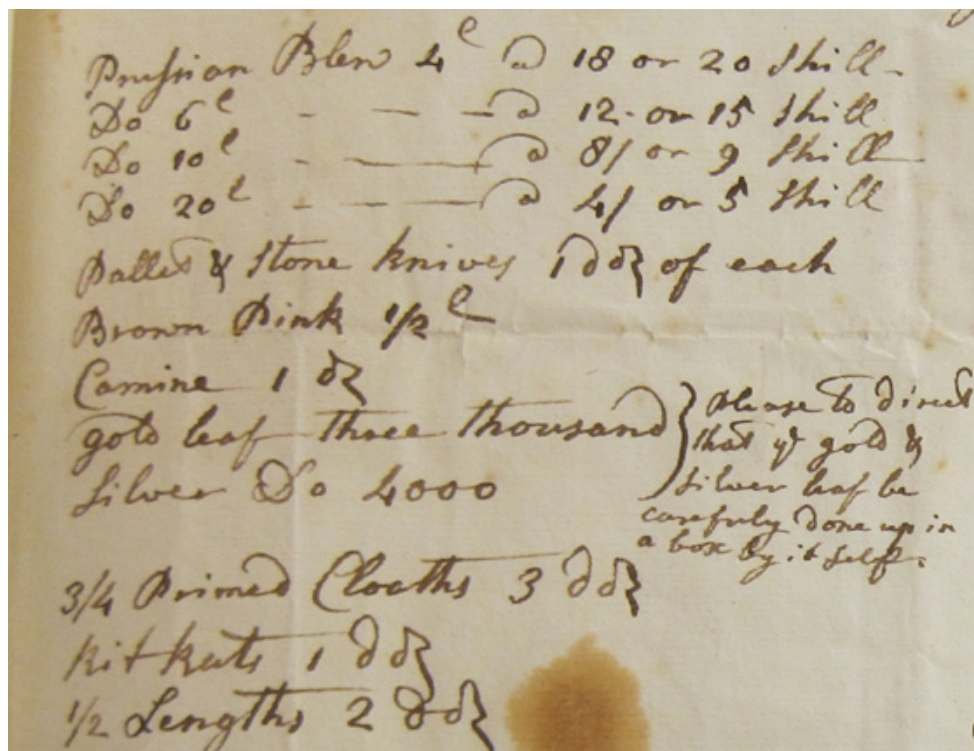 Prussian Blew 4 l @ 18 or 20 Shill
Do 6 l - - - @ 12 or 15 Shill
Do 10 l - - - @ 8/ or 9 Shill
Do 20 l - - - @ 4/ or 5 Shill
Pallet & Stone knives 1 doz of each
Brown Pink 1/2 l
Carmine 1 oz
gold leaf three thousand
Silver Do 4000
Please to direct
that ye gold &
Silver leaf be
carefuly done up in
a box by it Self.
3/4 Primed Cloaths 3 doz
kit kats 1 doz
1/2 Lengths 2 doz